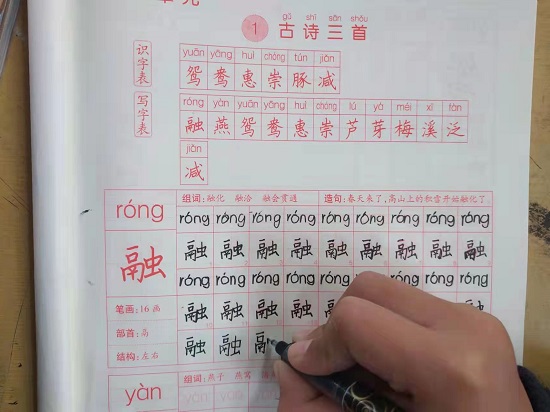 gǔ shī sān shǒu
1 古诗三首
识字表
yuān yāng huì chóng tún jiǎn
鸳 鸯 惠 崇 豚 减
写字表
róng yàn yuān yāng huì chóng lú yá méi xī fàn
融 燕 鸳 鸯 惠 崇 芦 芽 梅 溪 泛
jiǎn
减
róng
融
笔画:16画
部首:鬲
结构:左右
组词:融化 融洽 融会贯通 造句:春天来了,高山上的积雪开始融化了。
róng róng róng róng róng róng róng róng róng
融 融 融 融 融 融 融 融 融
róng róng róng róng róng róng róng róng róng
融 融 融 融 融 融 融 融
融 融
yàn
组词:燕子 燕窝